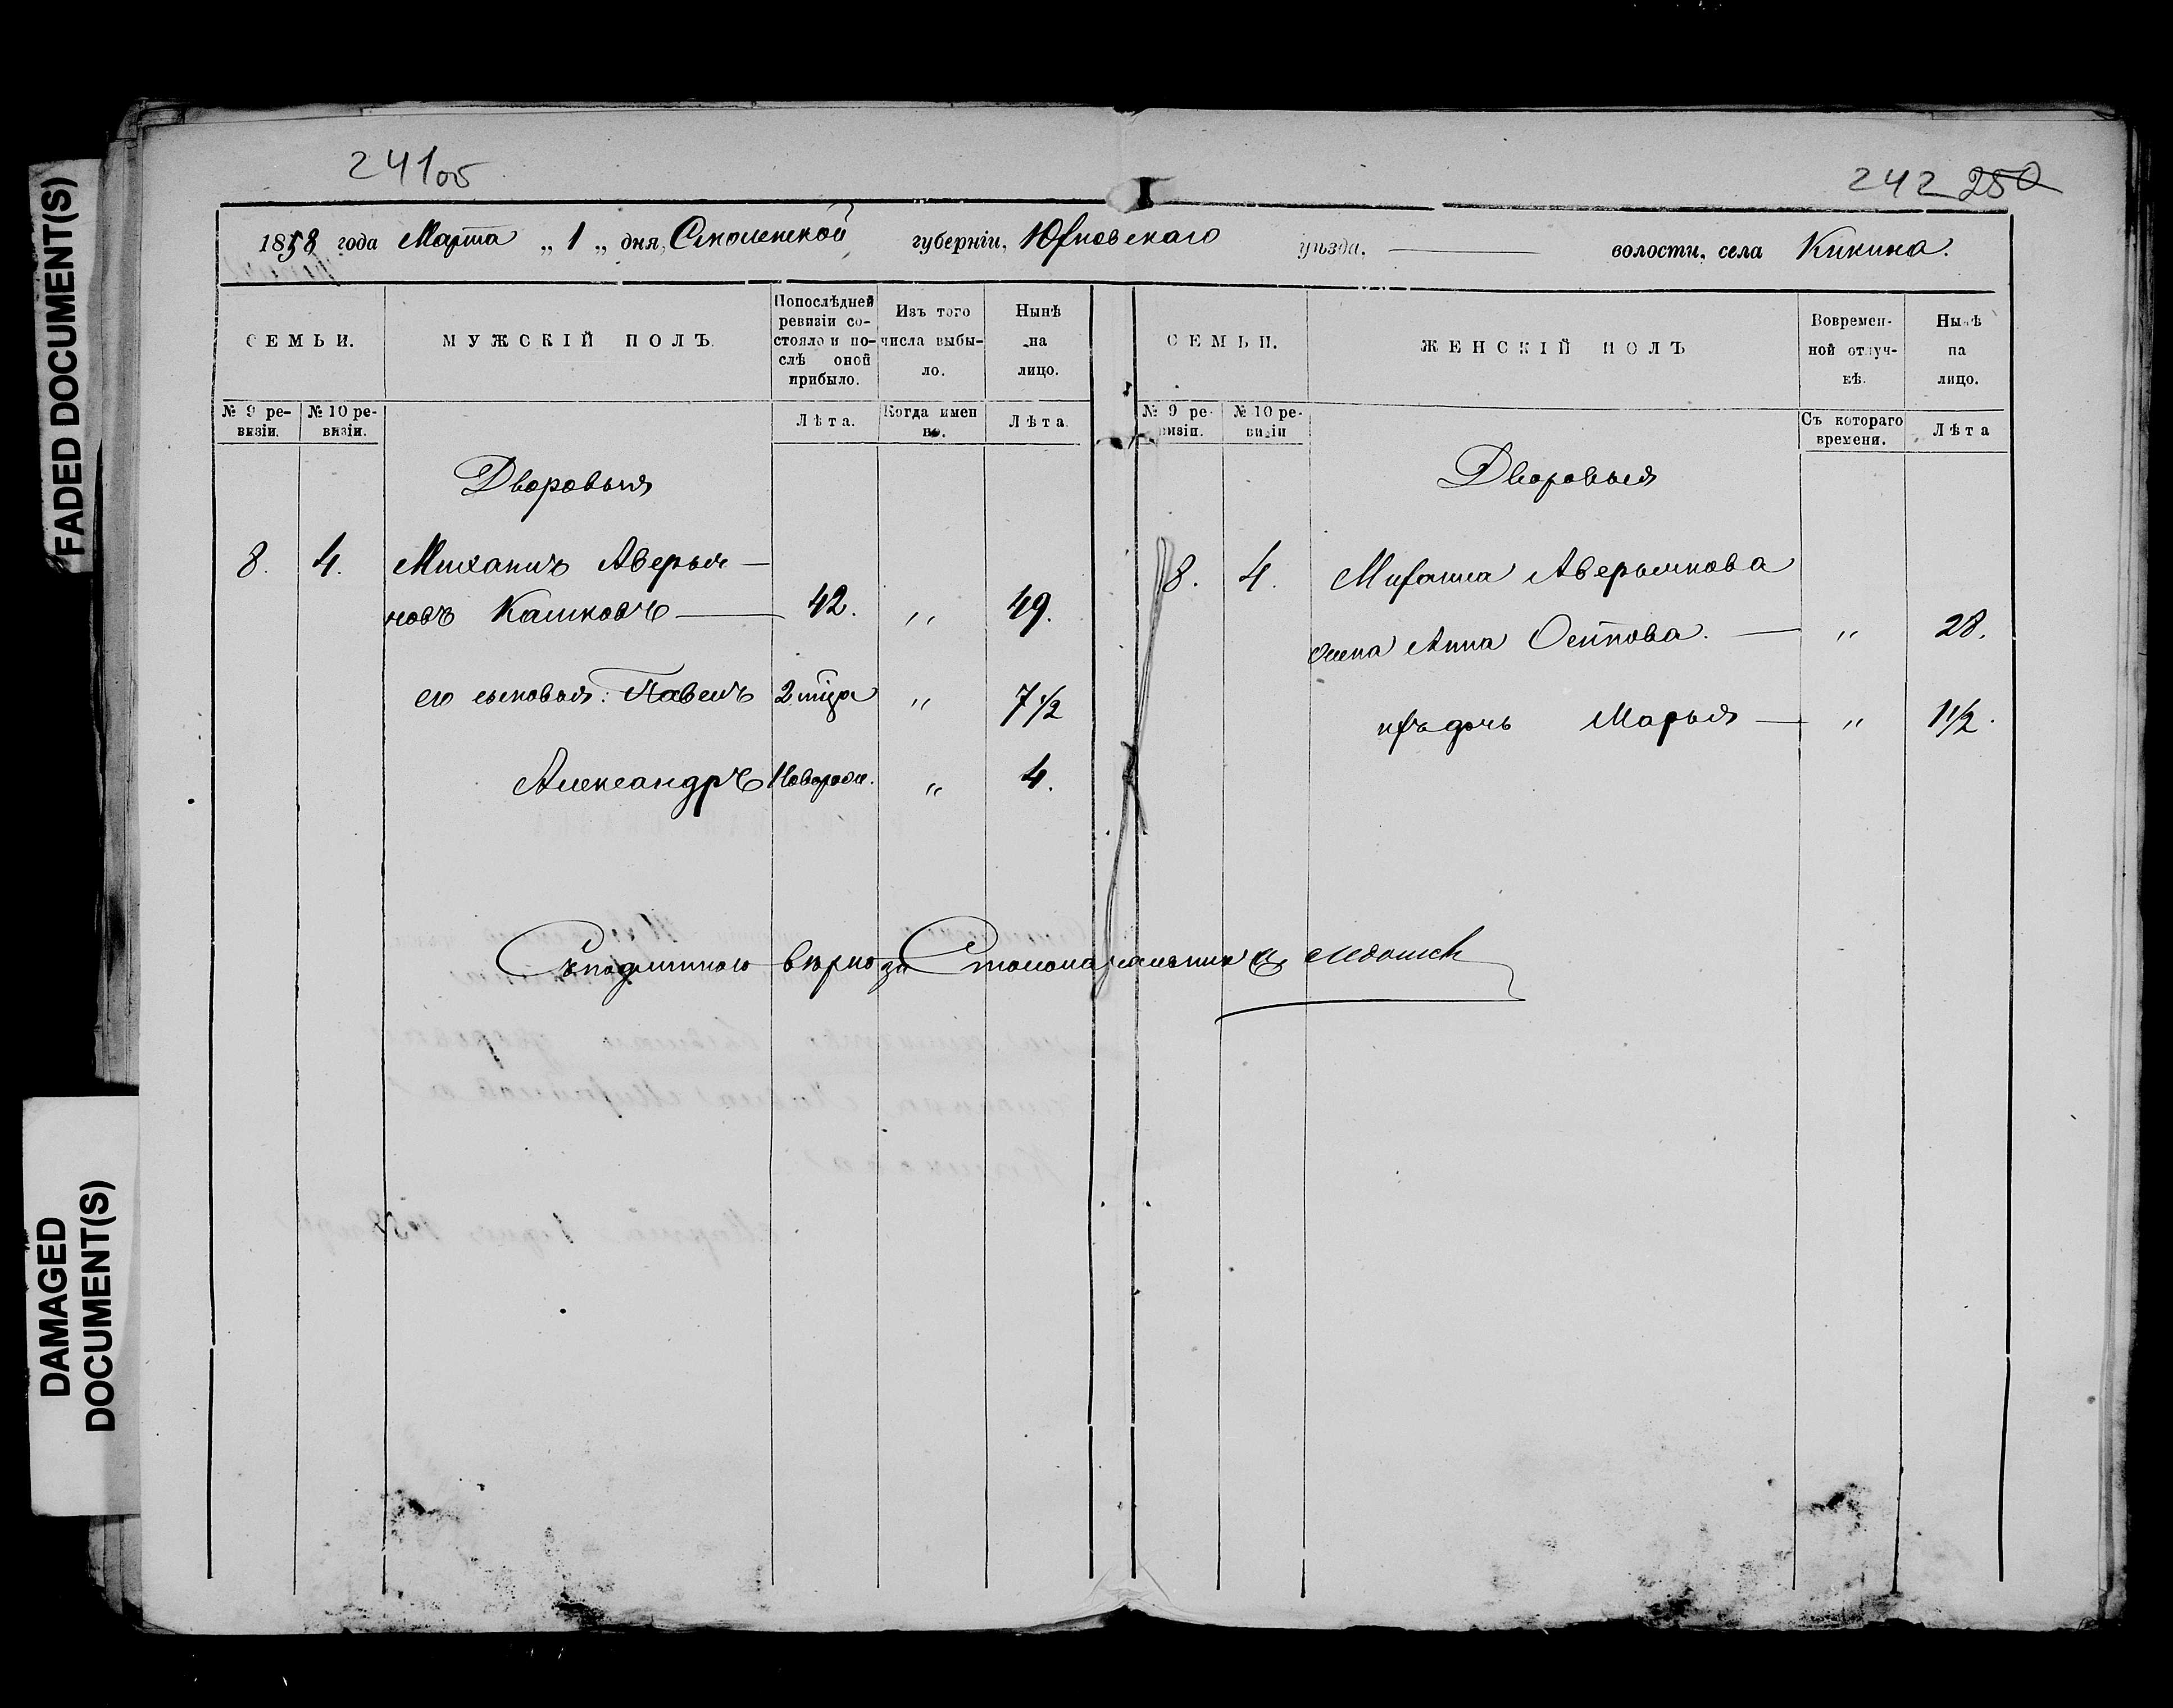 FADED DOCUMENT(S)
DAMAGED
DOCUMENT(S)
241об
242 250
1858 года Марта „ 1 „ дня, Смоленской губерніи, Юхновскаго уѣзда, волости, села Кикина.
СЕМЬИ.
МУЖСКІЙ ПОЛЪ.
Попослѣдней
ревизіи со-
стояло и по-
слѣ оной
прибыло.
Изъ того
числа выбы-
ло.
Нынѣ
на
лицо.
№ 9 ре-
визіи.
№ 10 ре-
визіи.
Лѣта.
Когда имен
но.
Лѣта.
Дворовыя
8. 4. Михаилъ Аверья—
новъ Кашковъ — 42. „ 49.
его сыновья: Павелъ 2 мѣца „ 7 1/2
Александръ Новорож. „ 4.
СЕМЬИ.
ЖЕНСКІЙ ПОЛЪ
Вовремен-
ной отлуч-
кѣ.
Нынѣ
на
лицо.
№ 9 ре-
визіи.
№ 10 ре-
визіи
Съ котораго
времени.
Лѣта
Дворовыя
8. 4. Михаила Аверьянова
жена Анна Осипова. — „ 28.
ихъ дочь Марья — „ 1 1/2.
Съ подлинною вѣрно за Столоначальника